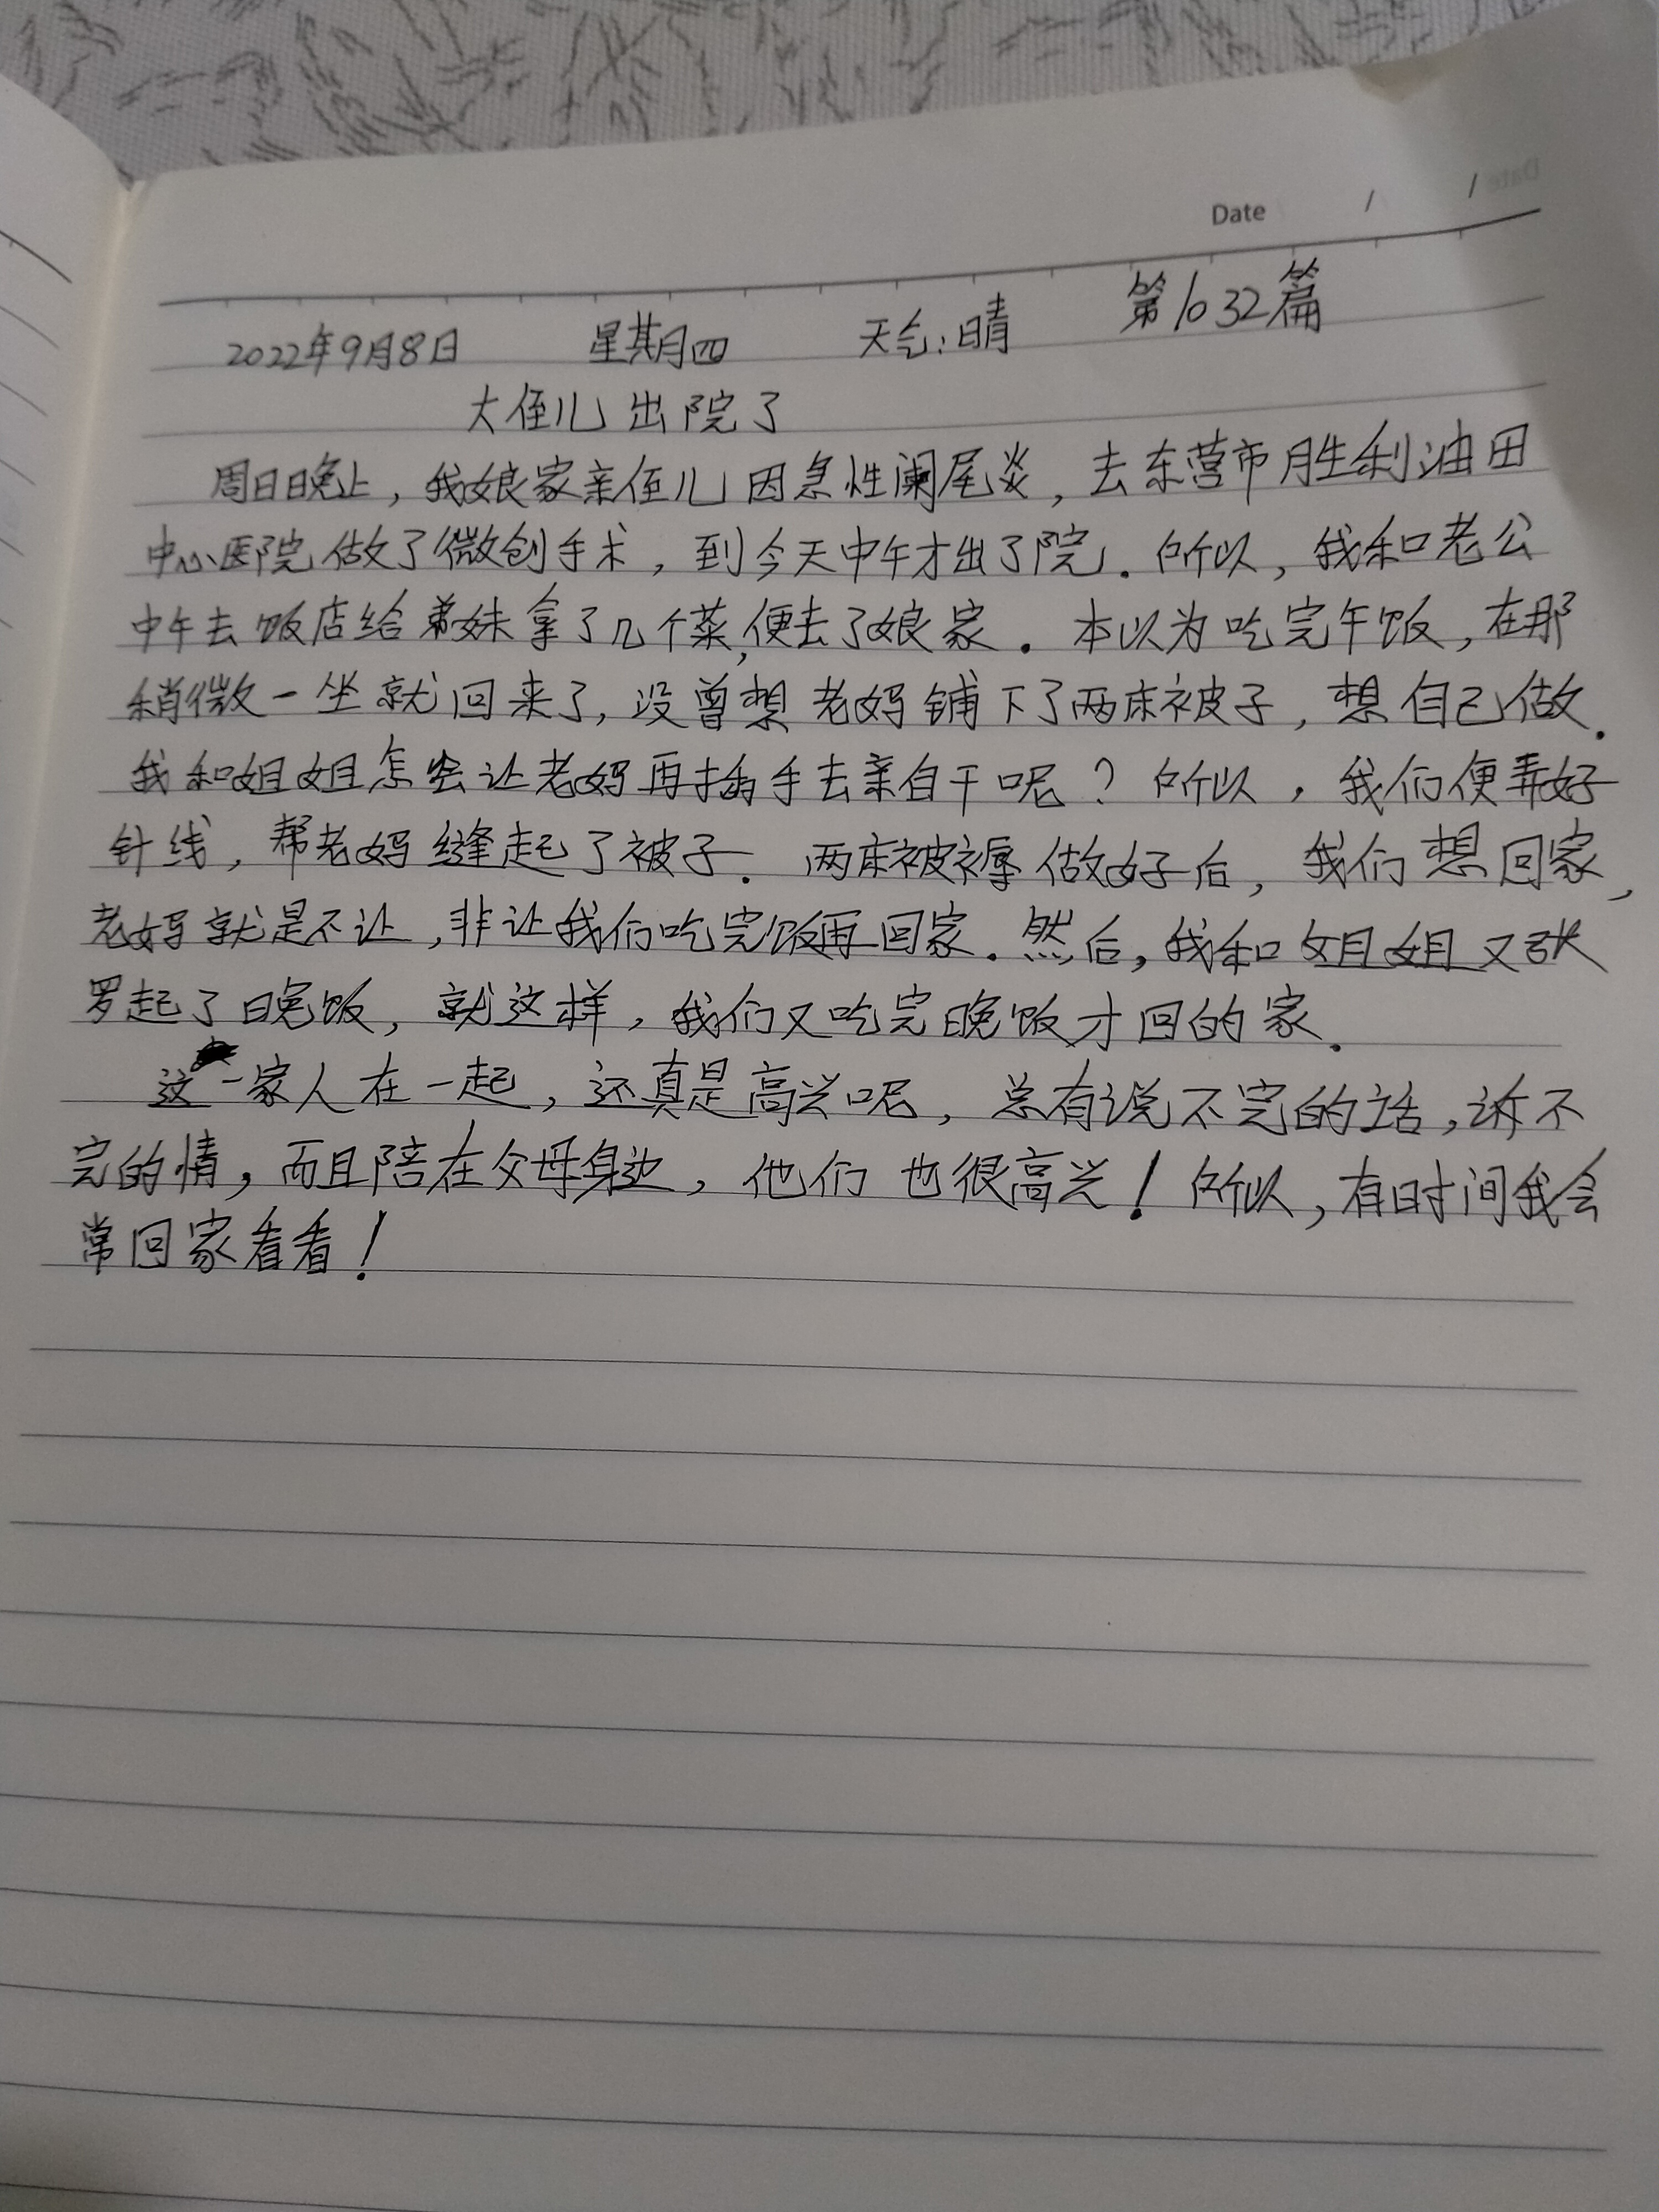 Date / /
2022年9月8日 星期四 天气:晴 第1032篇
大侄儿出院了
周日晚上，我娘家亲侄儿因急性阑尾炎，去东营市胜利油田
中心医院做了微创手术，到今天中午才出了院．所以，我和老公
中午去饭店给弟妹拿了几个菜，便去了娘家．本以为吃完午饭，在那
稍微一坐就回来了，没曾想老妈铺下了两床被子，想自己做．
我和姐姐怎会让老妈再插手去亲自干呢？所以，我们便弄好
针线，帮老妈缝起了被子．两床被褥做好后，我们想回家，
老妈就是不让，非让我们吃完饭再回家．然后，我和姐姐又张
罗起了晚饭，就这样，我们又吃完晚饭才回的家．
这一家人在一起，还真是高兴呢，总有说不完的话，诉不
完的情，而且陪在父母身边，他们也很高兴！所以，有时间我会
常回家看看！